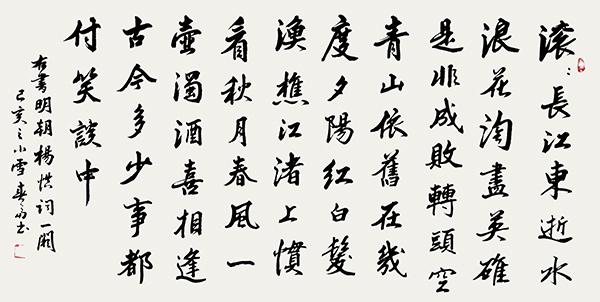 滚〻長江東逝水
浪花淘盡英雄
是非成敗轉頭空
青山依舊在幾
度夕陽紅白髮
漁樵江渚上慣
看秋月春風一
壺濁酒喜相逢
古今多少事都
付笑談中
右書明朝楊慎詞一闋
己亥之小雪